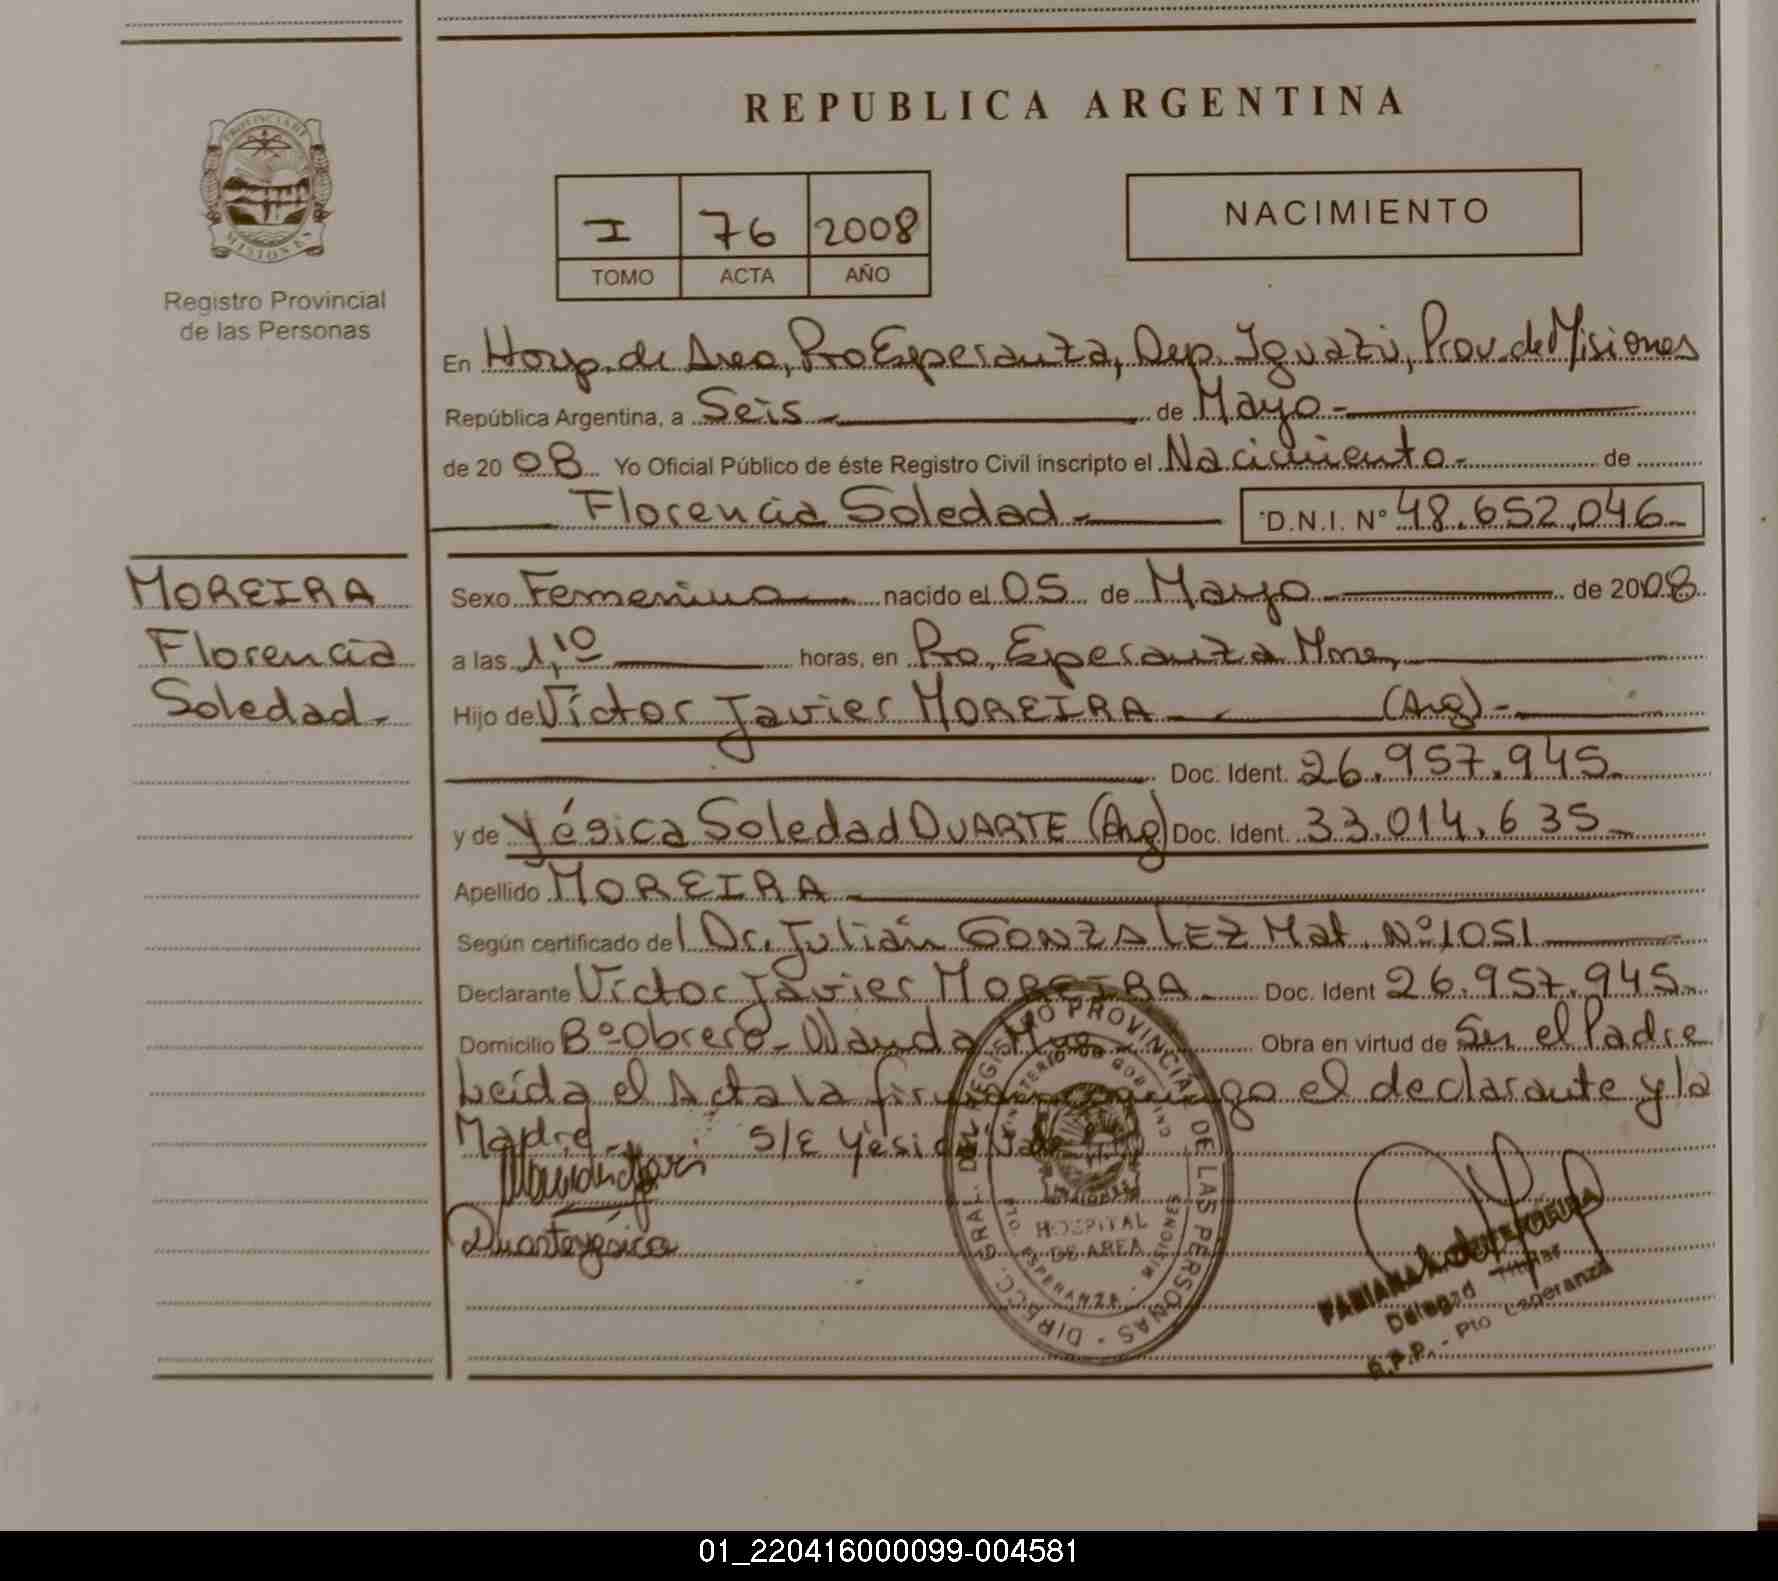 REPUBLICA ARGENTINA
PROVINCIA DE
MISIONES
Registro Provincial
de las Personas
I 76 2008
TOMO ACTA AÑO
NACIMIENTO
En Hosp. de Area, Pto Esperanza, Dep. Iguazú, Prov. de Misiones
República Argentina, a Seis de Mayo
de 20 08 Yo Oficial Público de éste Registro Civil inscripto el Nacimiento de
Florencia Soledad D.N.I. Nº 48.652.046
MOREIRA
Florencia
Soledad
Sexo Femenino nacido el 05 de Mayo de 2008
a las 1,10 horas, en Pto, Esperanza Mnes,
Hijo de Víctor Javier MOREIRA (Arg)
Doc. Ident. 26.957.945
y de Yésica Soledad DUARTE (Arg) Doc. Ident. 33.014.635
Apellido MOREIRA
Según certificado del Dr. Julián GONZALEZ Mat. Nº 1051
Declarante Víctor Javier MOREIRA Doc. Ident 26.957.945
Domicilio Bº Obrero - Wanda Obra en virtud de Ser el Padre
Leída el Acta la firman conmigo el declarante y la
Madre S/E Yésica Vale
Duarte yésica
DIRECC. GRAL. DEL REGISTRO PROVINCIAL DE LAS PERSONAS
MINISTERIO DE GOBIERNO
MISIONES
HOSPITAL
DE AREA
PTO ESPERANZA - MISIONES
FABIANA A.
Delegad Titular
R.P.P. - Pto Esperanza
01_220416000099-004581